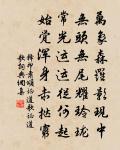 萬象森羅影現中
無頭無尾耀玲瓏
常光运运從何起
始覺渾身赤窮
釋印肅頌證道歌證道
歌詞典集